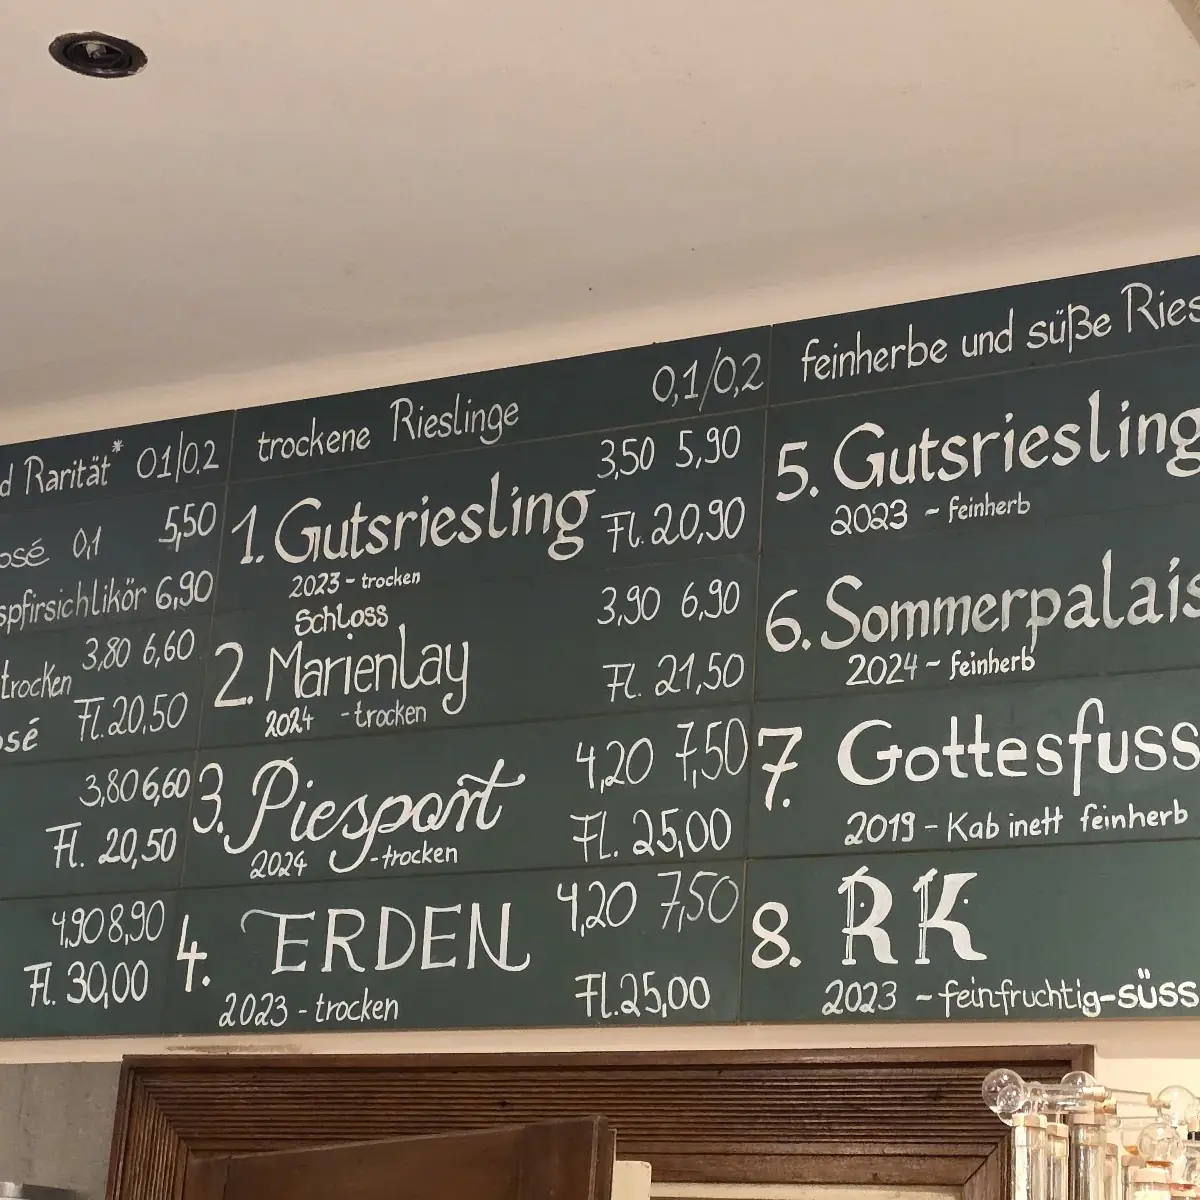 d Rarität* 01/0,2
osé 0,1 5,50
spfirsichlikör 6,90
3,80 6,60
trocken
Fl. 20,50
osé
3,80 6,60
Fl. 20,50
4,90 8,90
Fl. 30,00
trockene Rieslinge 0,1/0,2
1. Gutsriesling 3,50 5,90
Fl. 20,90
2023 - trocken
Schloss 3,90 6,90
2. Marienlay Fl. 21,50
2024 - trocken
3. Piesport 4,20 7,50
2024 - trocken Fl. 25,00
4. ERDEN 4,20 7,50
2023 - trocken Fl. 25,00
feinherbe und süße Ries
5. Gutsriesling
2023 - feinherb
6. Sommerpalais
2024 - feinherb
7. Gottesfuss
2019 - Kabinett feinherb
8. RK
2023 - feinfruchtig-süss